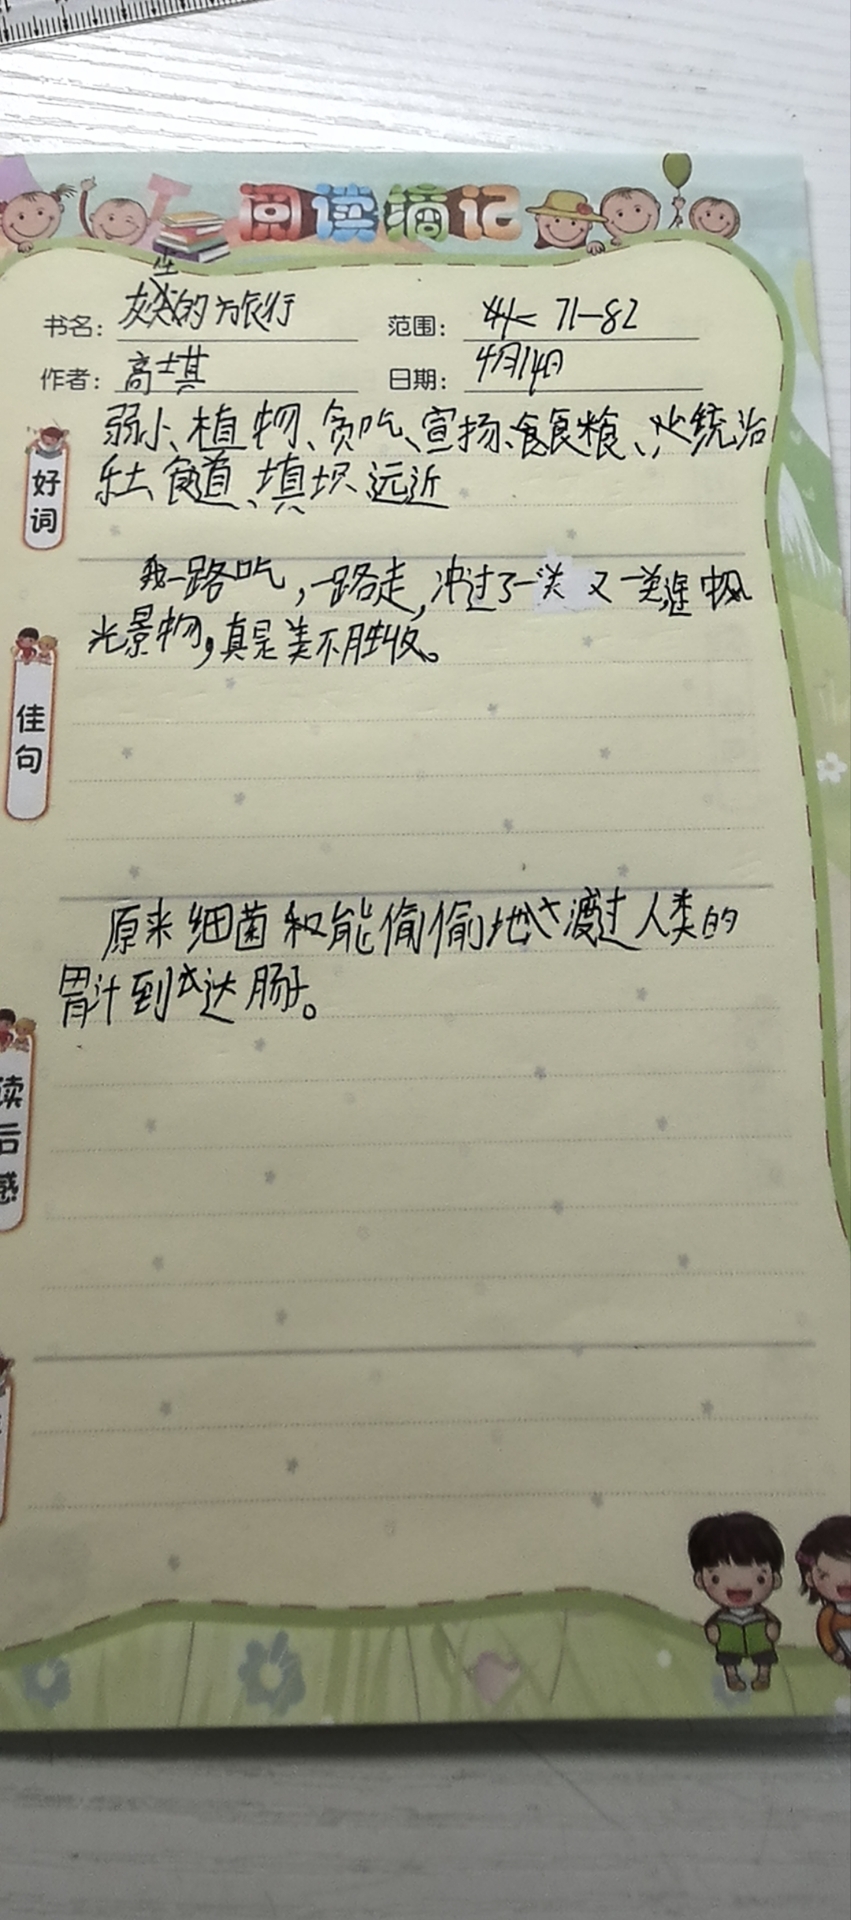 阅读摘记
书名: 的旅行 范围: 71-82
作者: 高士其 日期: 4月14日
好词
弱小、植物、贪吃、宣扬、粮食、统治
乐土、食道、填坝、远近
佳句
我一路吃，一路走，冲过了一关又一关，沿途风
光景物，真是美不胜收。
读后感
原来细菌和能偷偷地渡过人类的
胃汁到达肠子。